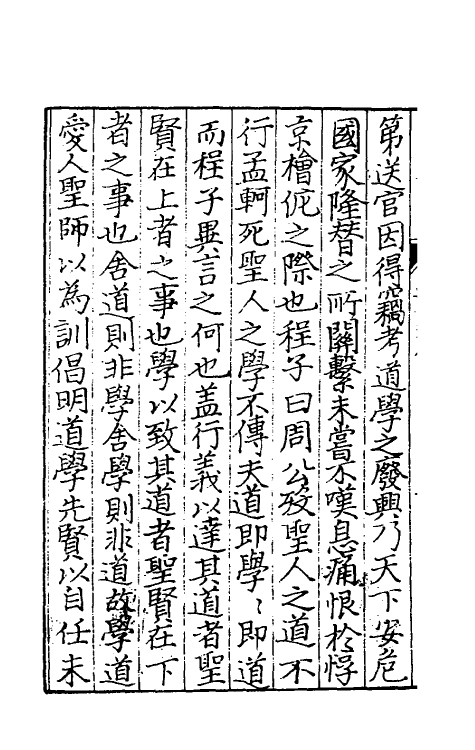 第送官因得竊考道學之廢興乃天下安危
國家隆替之所關繫未嘗不嘆息痛恨於惇
京檜侂之際也程子曰周公歿聖人之道不
行孟軻死聖人之學不傳夫道即學〻即道
而程子異言之何也盖行義以達其道者聖
賢在上者之事也學以致其道者聖賢在下
者之事也舍道則非學舍學則非道故學道
愛人聖師以為訓倡明道學先賢以自任未